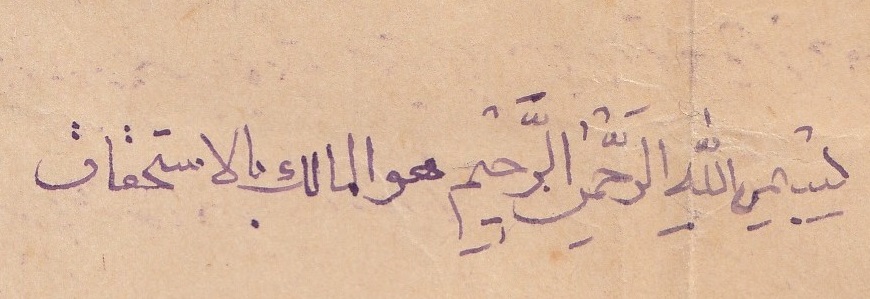 بسم الله الرَّحْمنِ الرَّحيمِ هو المالك بالاستحقاق